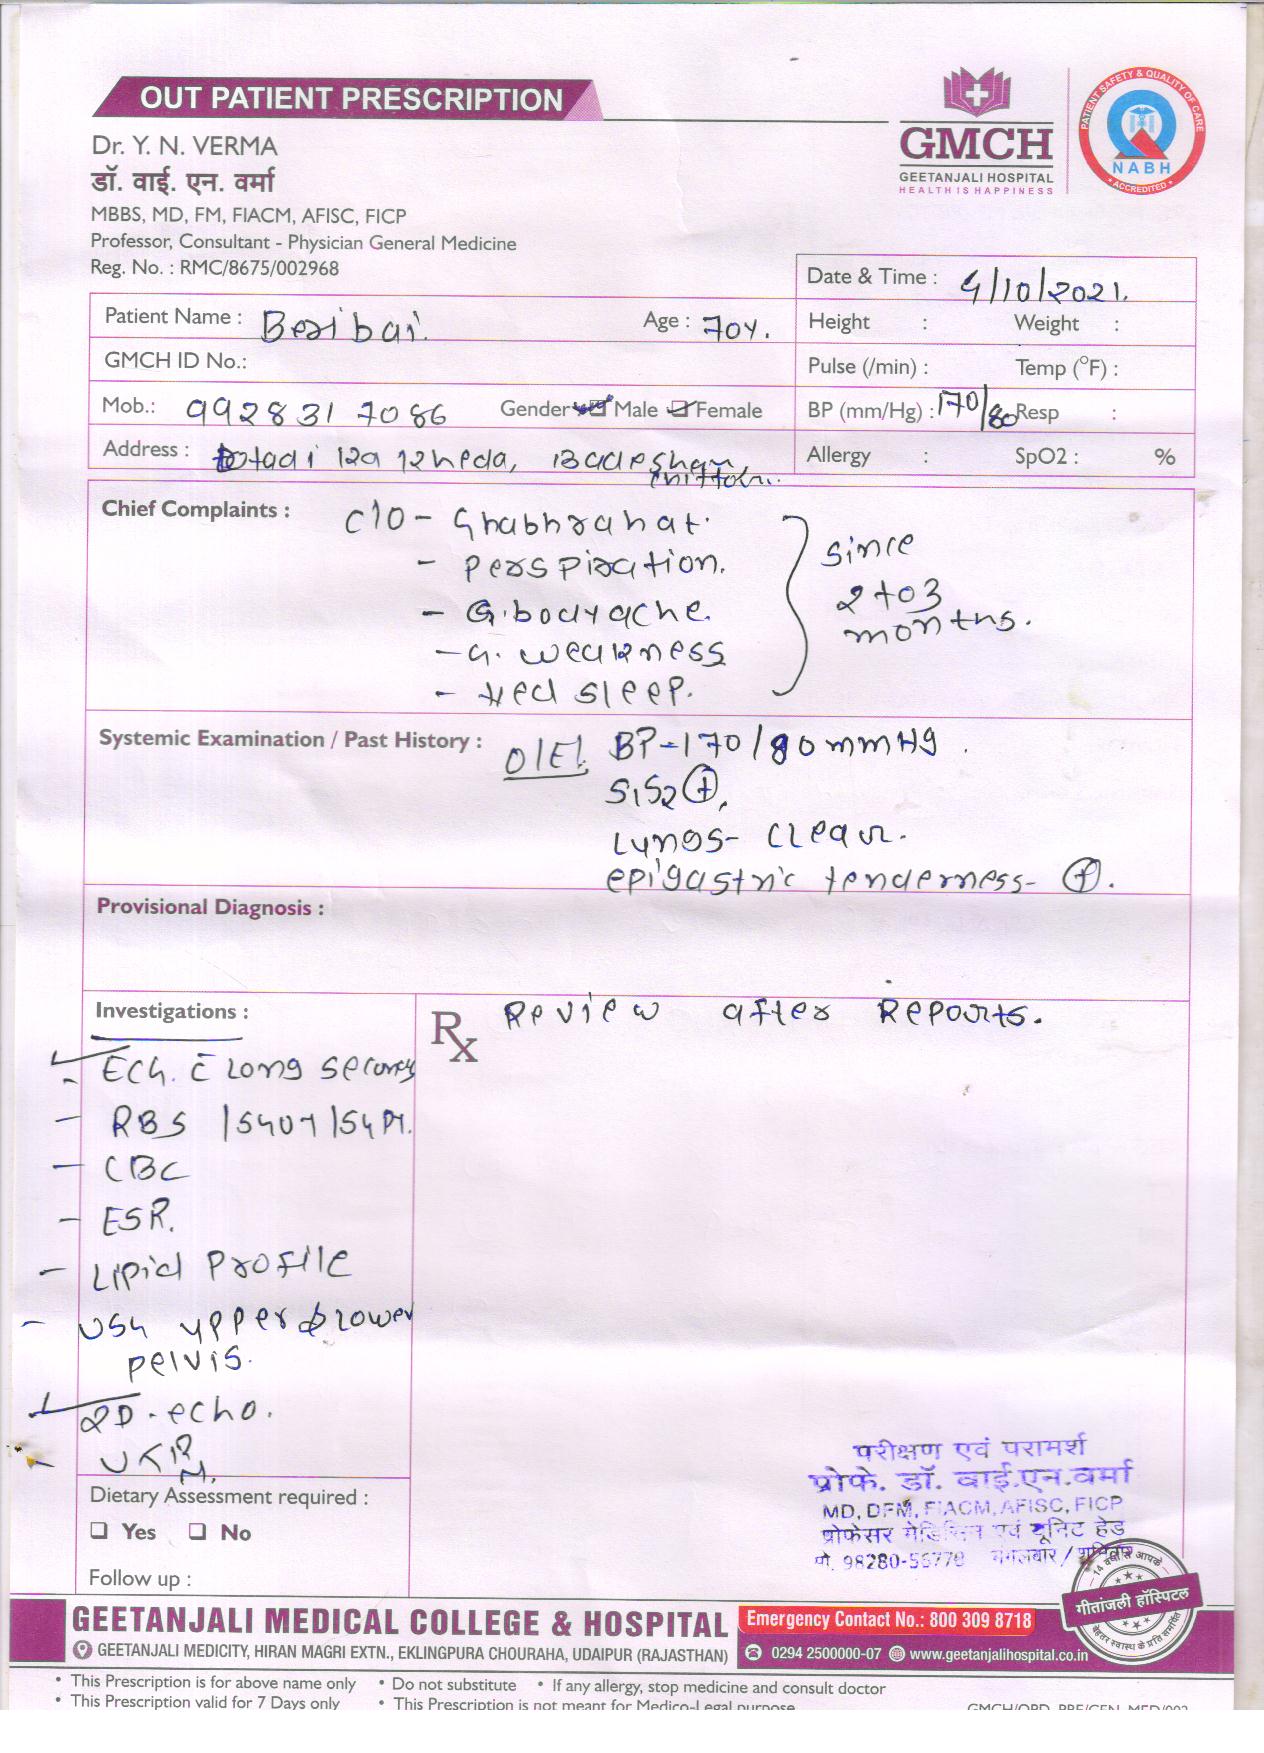 OUT PATIENT PRESCRIPTION
GMCH
GEETANJALI HOSPITAL
HEALTH IS HAPPINESS
PATIENT SAFETY & QUALITY OF CARE
NABH
ACCREDITED
Dr. Y. N. VERMA
डॉ. वाई. एन. वर्मा
MBBS, MD, FM, FIACM, AFISC, FICP
Professor, Consultant - Physician General Medicine
Reg. No. : RMC/8675/002968
Date & Time : 4/10/2021.
Patient Name : Beribai. Age : 70y.
Height : Weight :
GMCH ID No.:
Pulse (/min) : Temp (°F) :
Mob.: 9928317086 Gender Male Female
BP (mm/Hg) : 170/80 Resp :
Address :
Allergy : SpO2 : %
Chief Complaints : C/O - Ghabhrahat.
- Perspiration.
- G. bodyache.
- G. weakness
- sleep.
since
2 to 3
months.
Systemic Examination / Past History : O/E! BP-170/80 mmHg.
S1S2 (+),
Lungs- clear.
epigastric tenderness- (+).
Provisional Diagnosis :
Investigations :
Rx Review after Reports.
- ECG. c̄ Long
- RBS /SGOT/SGPT.
- CBC
- ESR.
- Lipid Profile
- USG upper & lower
pelvis.
- 2D-echo.
Dietary Assessment required :
Yes No
Follow up :
परीक्षण एवं परामर्श
प्रोफे. डॉ. वाई.एन.वर्मा
MD, DFM, FIACM, AFISC, FICP
प्रोफेसर मेडिसिन एवं यूनिट हेड
मो. 98280-56778 मंगलवार / शनिवार
14 वर्षों से आपके
गीतांजली हॉस्पिटल
बेहतर स्वास्थ के प्रति समर्पित
GEETANJALI MEDICAL COLLEGE & HOSPITAL
Emergency Contact No.: 800 309 8718
GEETANJALI MEDICITY, HIRAN MAGRI EXTN., EKLINGPURA CHOURAHA, UDAIPUR (RAJASTHAN)
0294 2500000-07 www.geetanjalihospital.co.in
• This Prescription is for above name only • Do not substitute • If any allergy, stop medicine and consult doctor
• This Prescription valid for 7 Days only • This Prescription is not meant for Medico-Legal purpose
GMCH/OPD. PRE/GEN. MED/002